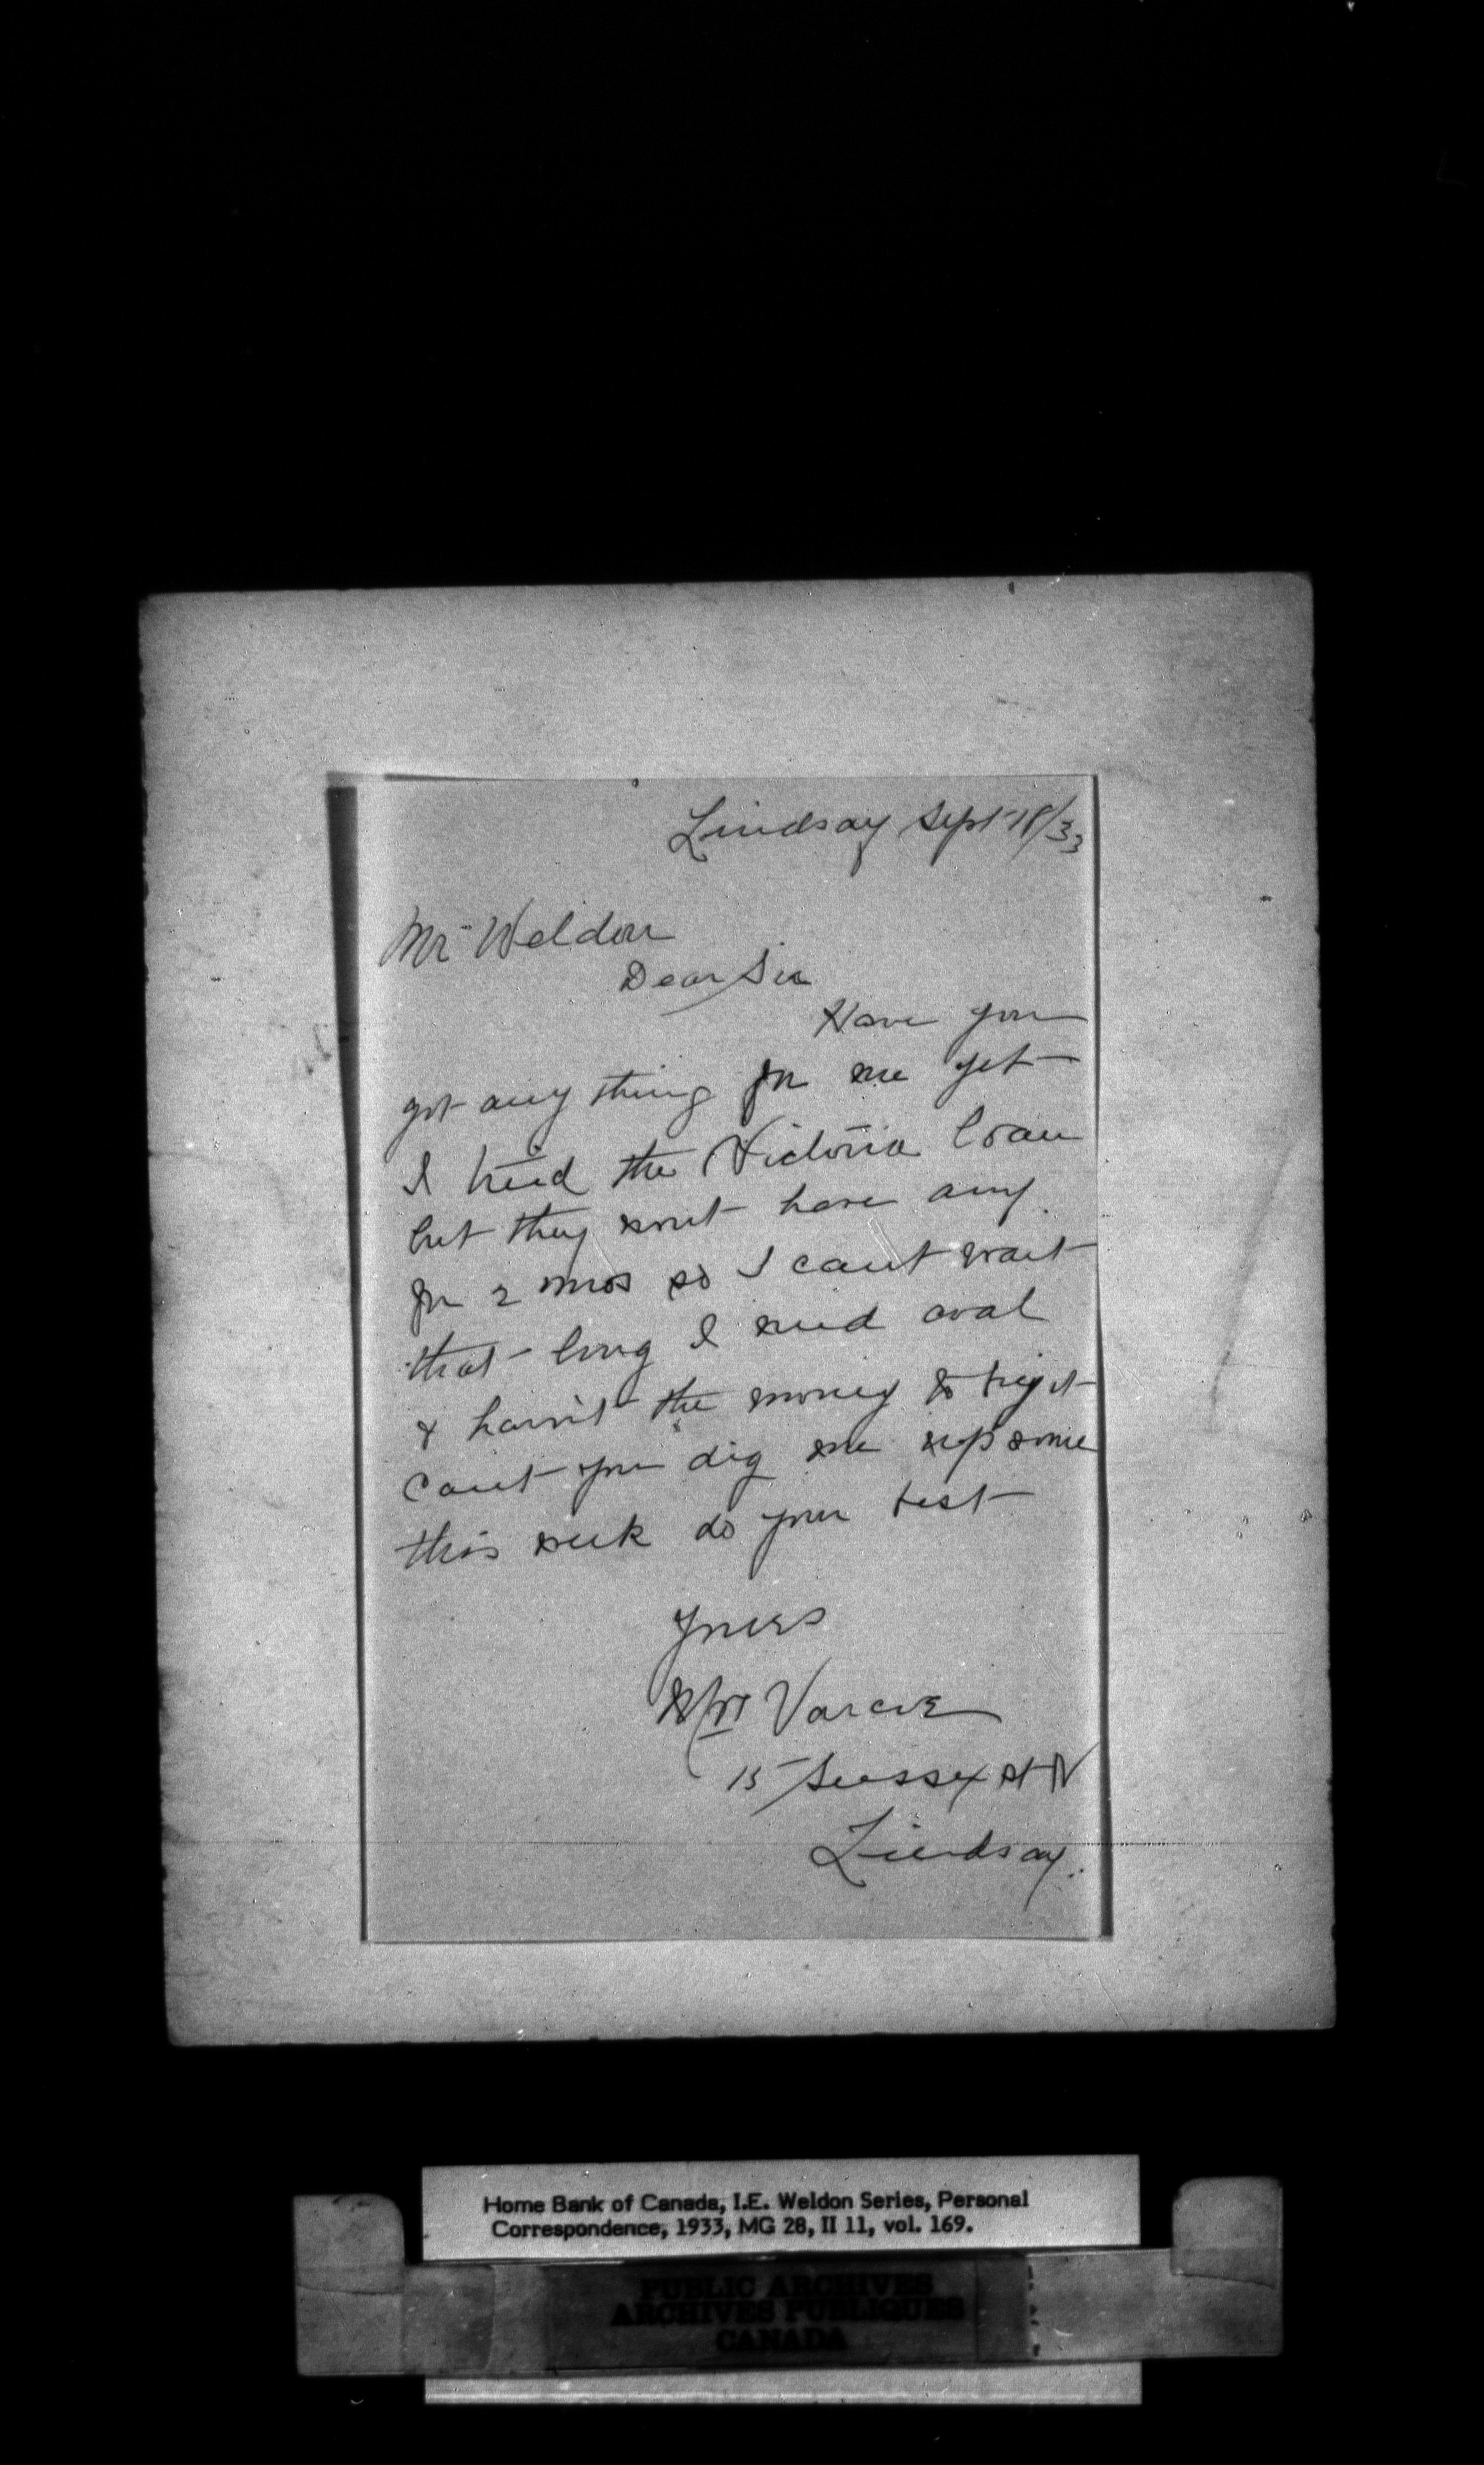 Lindsay Sept 18/33
Mr Weldon
Dear Sir
Have you
got any thing for me yet
I tried the Victoria Loan
but they wont have any
for 2 mos so I cant wait
that long I need coal
& havnt the money to buy it
cant you dig me up some
this week do your best
Yours
Varcoe
15 Sussex St N
Lindsay.
Home Bank of Canada, I.E. Weldon Series, Personal
Correspondence, 1933, MG 28, II 11, vol. 169.
PUBLIC ARCHIVES
ARCHIVES PUBLIQUES
CANADA